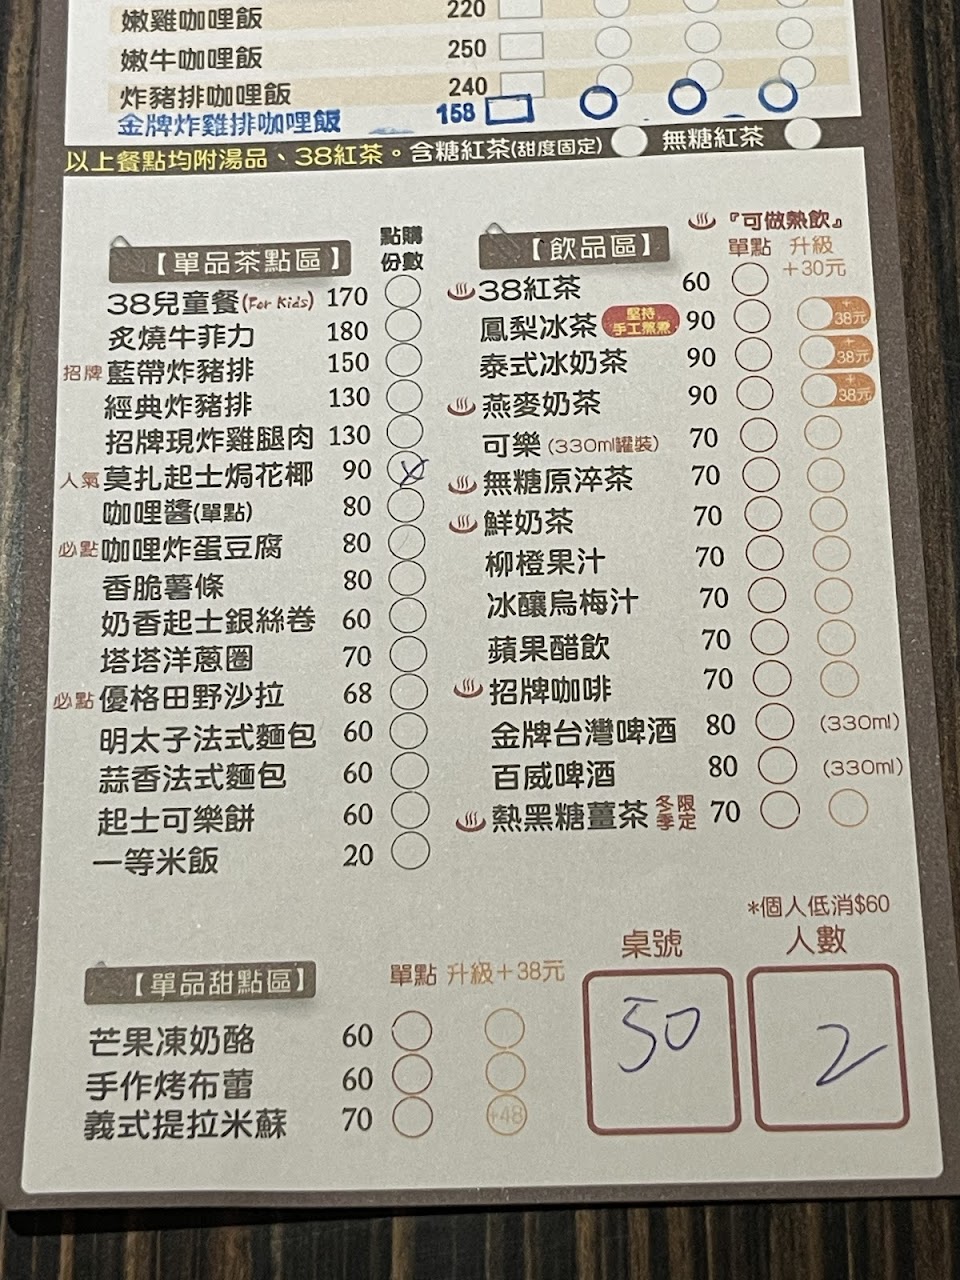 嫩雞咖哩飯 220
嫩牛咖哩飯 250
炸豬排咖哩飯 240
金牌炸雞排咖哩飯 158
以上餐點均附湯品、38紅茶。含糖紅茶(甜度固定) 無糖紅茶
【單品茶點區】 點購份數
38兒童餐(For Kids) 170
炙燒牛菲力 180
招牌 藍帶炸豬排 150
經典炸豬排 130
招牌現炸雞腿肉 130
人氣 莫扎起士焗花椰 90 X
咖哩醬(單點) 80
必點 咖哩炸蛋豆腐 80
香脆薯條 80
奶香起士銀絲卷 60
塔塔洋蔥圈 70
必點 優格田野沙拉 68
明太子法式麵包 60
蒜香法式麵包 60
起士可樂餅 60
一等米飯 20
『可做熱飲』
【飲品區】 單點 升級+30元
38紅茶 60
鳳梨冰茶 堅持手工熬煮 90 +38元
泰式冰奶茶 90 +38元
燕麥奶茶 90 +38元
可樂(330ml罐裝) 70
無糖原淬茶 70
鮮奶茶 70
柳橙果汁 70
冰釀烏梅汁 70
蘋果醋飲 70
招牌咖啡 70
金牌台灣啤酒 80 (330ml)
百威啤酒 80 (330ml)
熱黑糖薑茶 冬季限定 70
*個人低消$60
桌號 人數
50 2
【單品甜點區】 單點 升級+38元
芒果凍奶酪 60
手作烤布蕾 60
義式提拉米蘇 70 +48